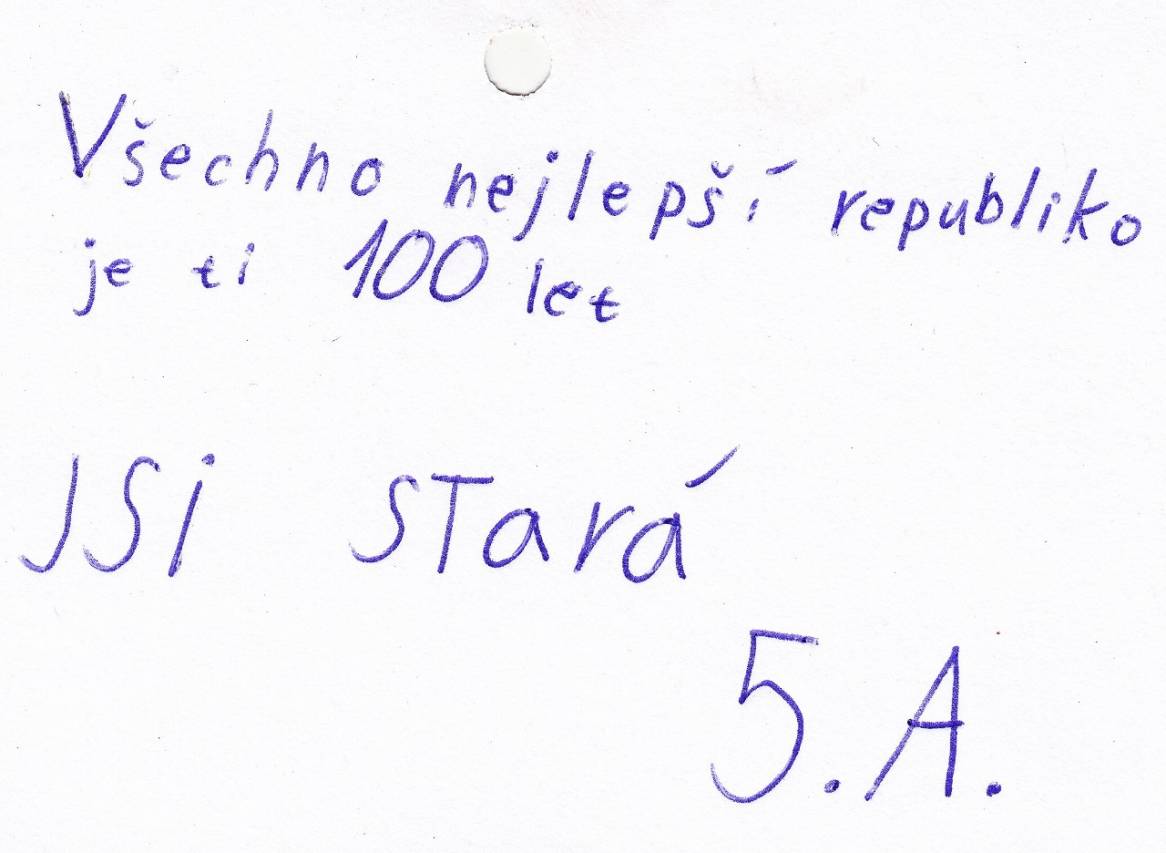 Všechno nejlepší republiko
je ti 100 let
JSi STará
5.A.